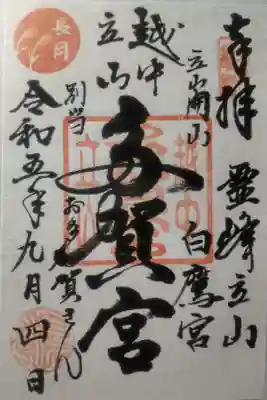 奉拝 霊峰立山
立山開山 白鷹宮
越中
立山
多賀宮
別当 お多賀さん
令和五年九月四日
長月